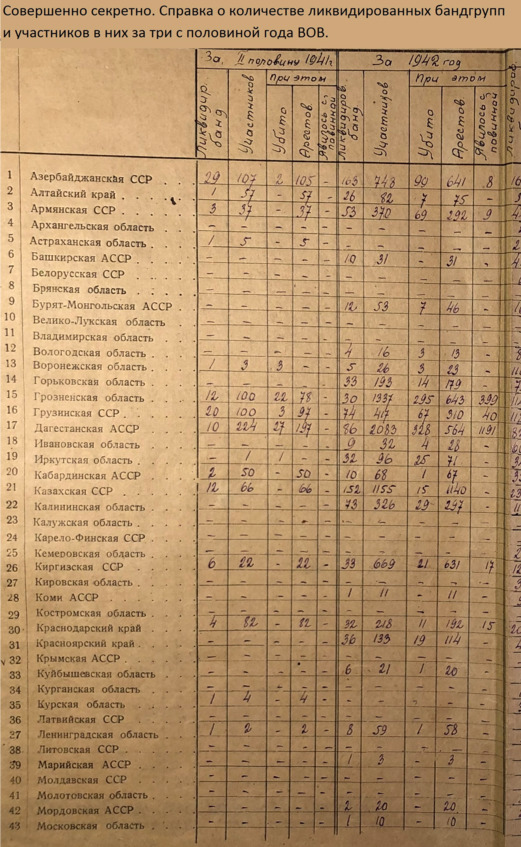 Совершенно секретно. Справка о количестве ликвидированных бандгрупп
и участников в них за три с половиной года ВОВ.
За II половину 1941 г. За 1942 год
При этом При этом
Ликвидир. банд Участников Убито Арестов. Явилось с повинной Ликвидиров. банд Участников Убито Арестов. Явилось с повинной
1 Азербайджанская ССР 29 107 2 105 - 163 748 99 641 8
2 Алтайский край 1 57 - 57 - 26 82 7 75 -
3 Армянская ССР 3 37 - 37 - 53 370 69 292 9
4 Архангельская область - - - - - - - - - -
5 Астраханская область 1 5 - 5 - - - - - -
6 Башкирская АССР - - - - - 10 31 - 31 -
7 Белорусская ССР - - - - - - - - - -
8 Брянская область - - - - - - - - - -
9 Бурят-Монгольская АССР - - - - - 12 53 7 46 -
10 Велико-Лукская область - - - - - - - - - -
11 Владимирская область - - - - - - - - - -
12 Вологодская область - - - - - 4 16 3 13 -
13 Воронежская область 1 3 3 - - 5 26 3 23 -
14 Горьковская область - - - - - 33 193 14 179 -
15 Грозненская область 12 100 22 78 - 30 1337 295 643 399
16 Грузинская ССР 20 100 3 97 - 74 417 67 310 40
17 Дагестанская АССР 10 224 27 197 - 86 2083 328 564 1191
18 Ивановская область - - - - - 9 32 4 28 -
19 Иркутская область - 1 1 - - 32 96 25 71 -
20 Кабардинская АССР 2 50 - 50 - 10 68 1 67 -
21 Казахская ССР 12 66 - 66 - 152 1155 15 1140 -
22 Калининская область - - - - - 73 326 29 297 -
23 Калужская область - - - - - - - - - -
24 Карело-Финская ССР - - - - - - - - - -
25 Кемеровская область - - - - - - - - - -
26 Киргизская ССР 6 22 - 22 - 33 669 21 631 17
27 Кировская область - - - - - - - - - -
28 Коми АССР - - - - - 1 11 - 11 -
29 Костромская область - - - - - - - - - -
30 Краснодарский край 4 82 - 82 - 32 218 11 192 15
31 Красноярский край - - - - - 36 133 19 114 -
32 Крымская АССР - - - - - - - - - -
33 Куйбышевская область - - - - - 6 21 1 20 -
34 Курганская область - - - - - - - - - -
35 Курская область 1 4 - 4 - - - - - -
36 Латвийская ССР - - - - - - - - - -
27 Ленинградская область 1 2 - 2 - 8 59 1 58 -
38 Литовская ССР - - - - - - - - - -
39 Марийская АССР - - - - - 1 3 - 3 -
40 Молдавская ССР - - - - - - - - - -
41 Молотовская область - - - - - - - - - -
42 Мордовская АССР - - - - - 2 20 - 20 -
43 Московская область - - - - - 1 10 - 10 -